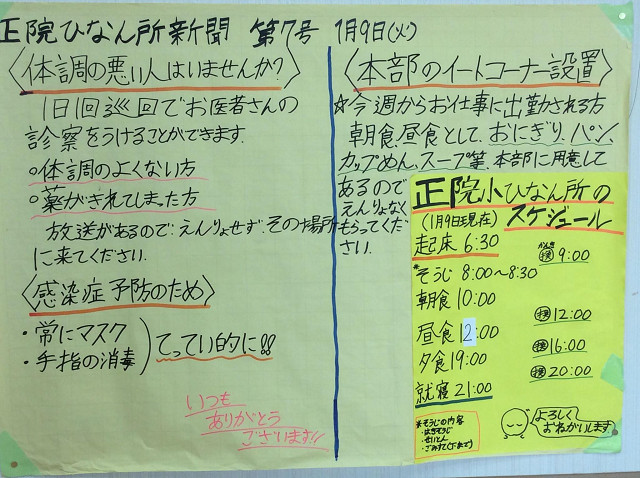 正院ひなん所新聞 第7号 1月9日(火)
〈体調の悪い人はいませんか?〉
1日1回巡回でお医者さんの
診察をうけることができます.
○体調のよくない方
○薬がきれてしまった方
放送があるので、えんりょせず、その場所
に来てください.
〈感染症予防のため〉
・常にマスク
・手指の消毒
てってい的に!!
いつも
ありがとう
ございます!!
〈本部のイートコーナー設置〉
☆今週からお仕事に出勤される方
朝食、昼食として、おにぎり、パン、
カップめん、スープ等、本部に用意して
あるので
えんりょなく
もらってくだ
さい.
正院小ひなん所の
スケジュール
(1月9日現在)
起床 6:30
かんき
換 9:00
*そうじ 8:00〜8:30
朝食 10:00
換 12:00
昼食 12:00
換 16:00
夕食 19:00
換 20:00
就寝 21:00
*そうじの内容
・はきそうじ
・せいとん
・ごみすて
よろしく
おねがいします